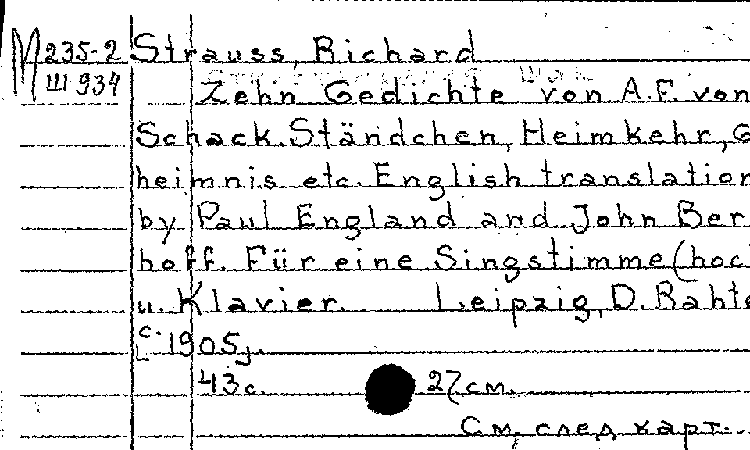 М 235-2 Strauss, Richard
Ш 934 Zehn Gedichte von A.F. von
Schack. Ständchen, Heimkehr, G
heimnis etc. English translation
by Paul England and John Ber
hoff. Für eine Singstimme (hoc
u. Klavier. Leipzig, D. Rahte
[c. 1905].
43 с. 27 см.
См. след карт.